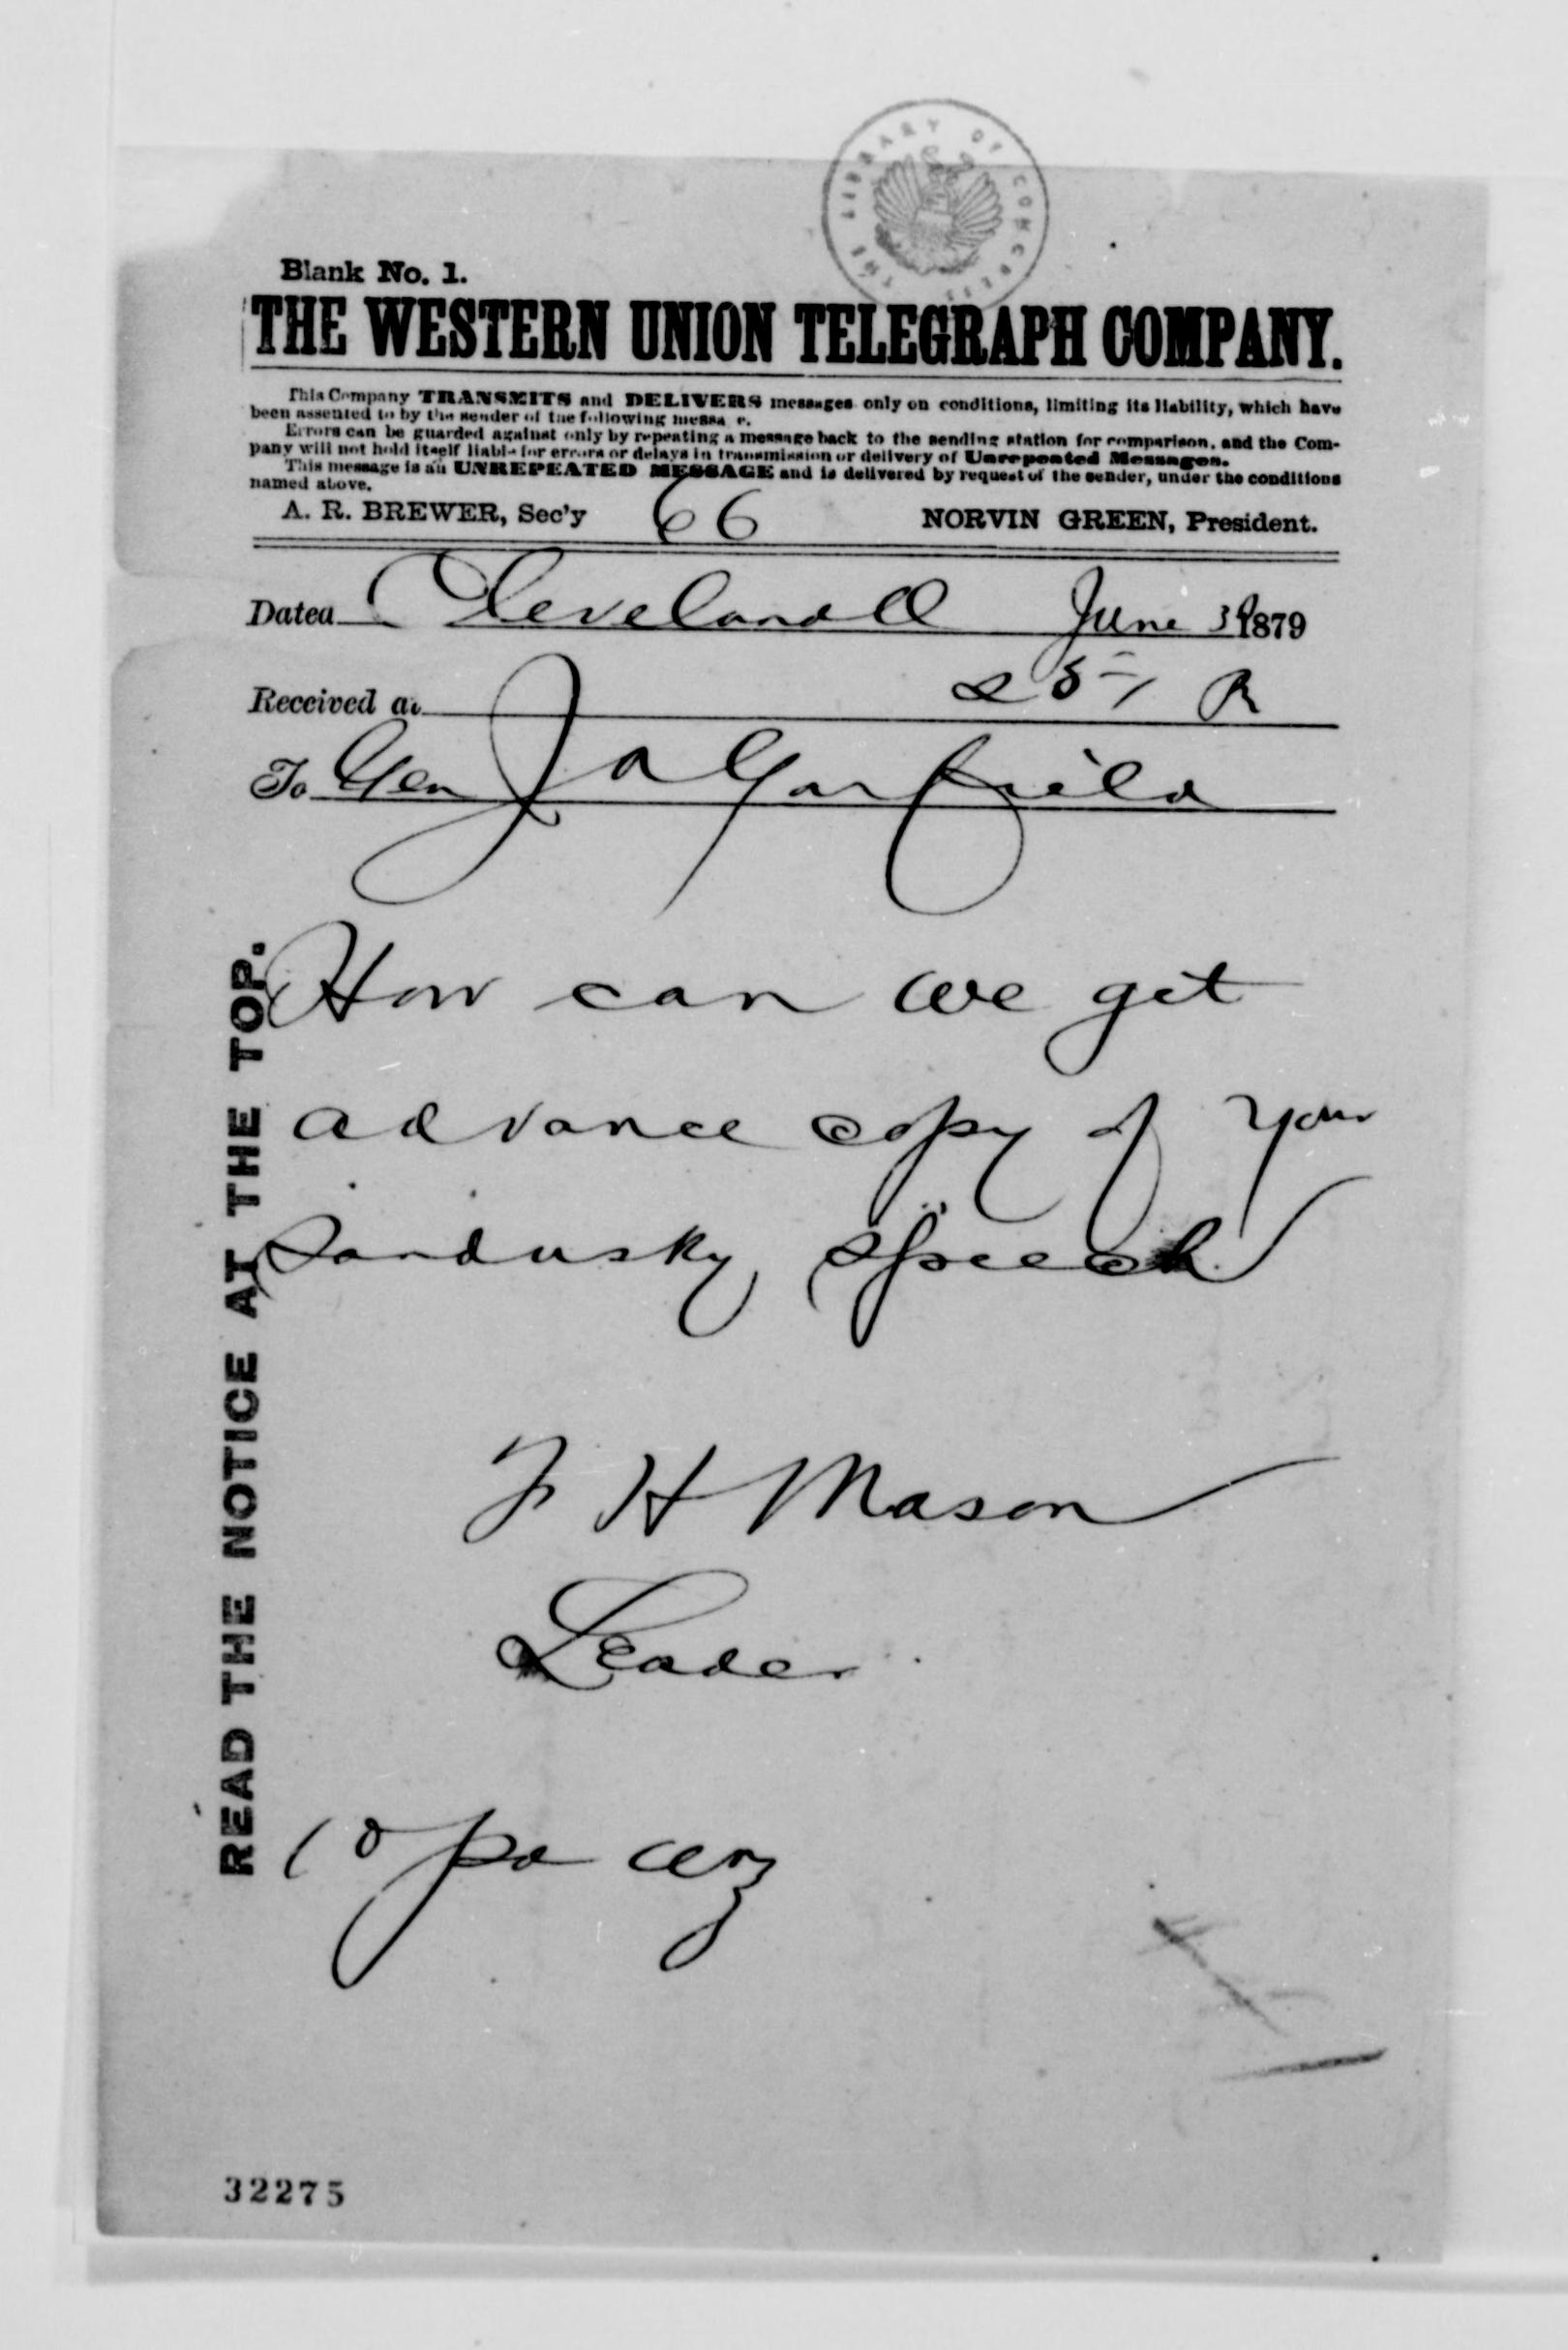 THE LIBRARY OF CONGRESS
Blank No. 1.
THE WESTERN UNION TELEGRAPH COMPANY.
This Company TRANSMITS and DELIVERS messages only on conditions, limiting its liability, which have
been assented to by the sender of the following message.
Errors can be guarded against only by repeating a message back to the sending station for comparison, and the Com-
pany will not hold itself liable for errors or delays in transmission or delivery of Unrepeated Messages.
This message is an UNREPEATED MESSAGE and is delivered by request of the sender, under the conditions
named above.
A. R. BREWER, Sec'y 66 NORVIN GREEN, President.
Dated Cleveland O June 1879
Received at R
To Gen J A Garfield
How can we get
advance copy of your
Sandusky speech
F H Mason
Leader
10 pd
READ THE NOTICE AT THE TOP.
32275